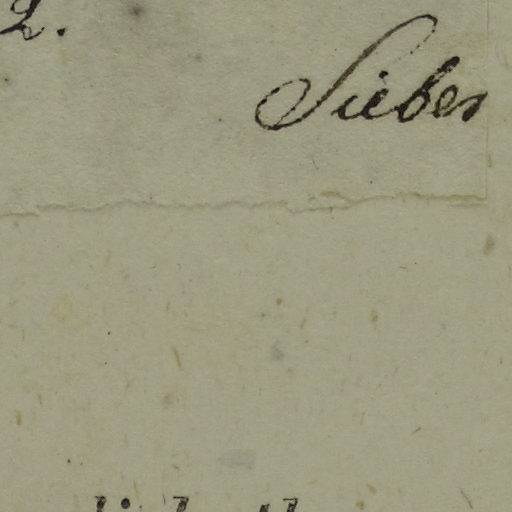 2.
Sieber